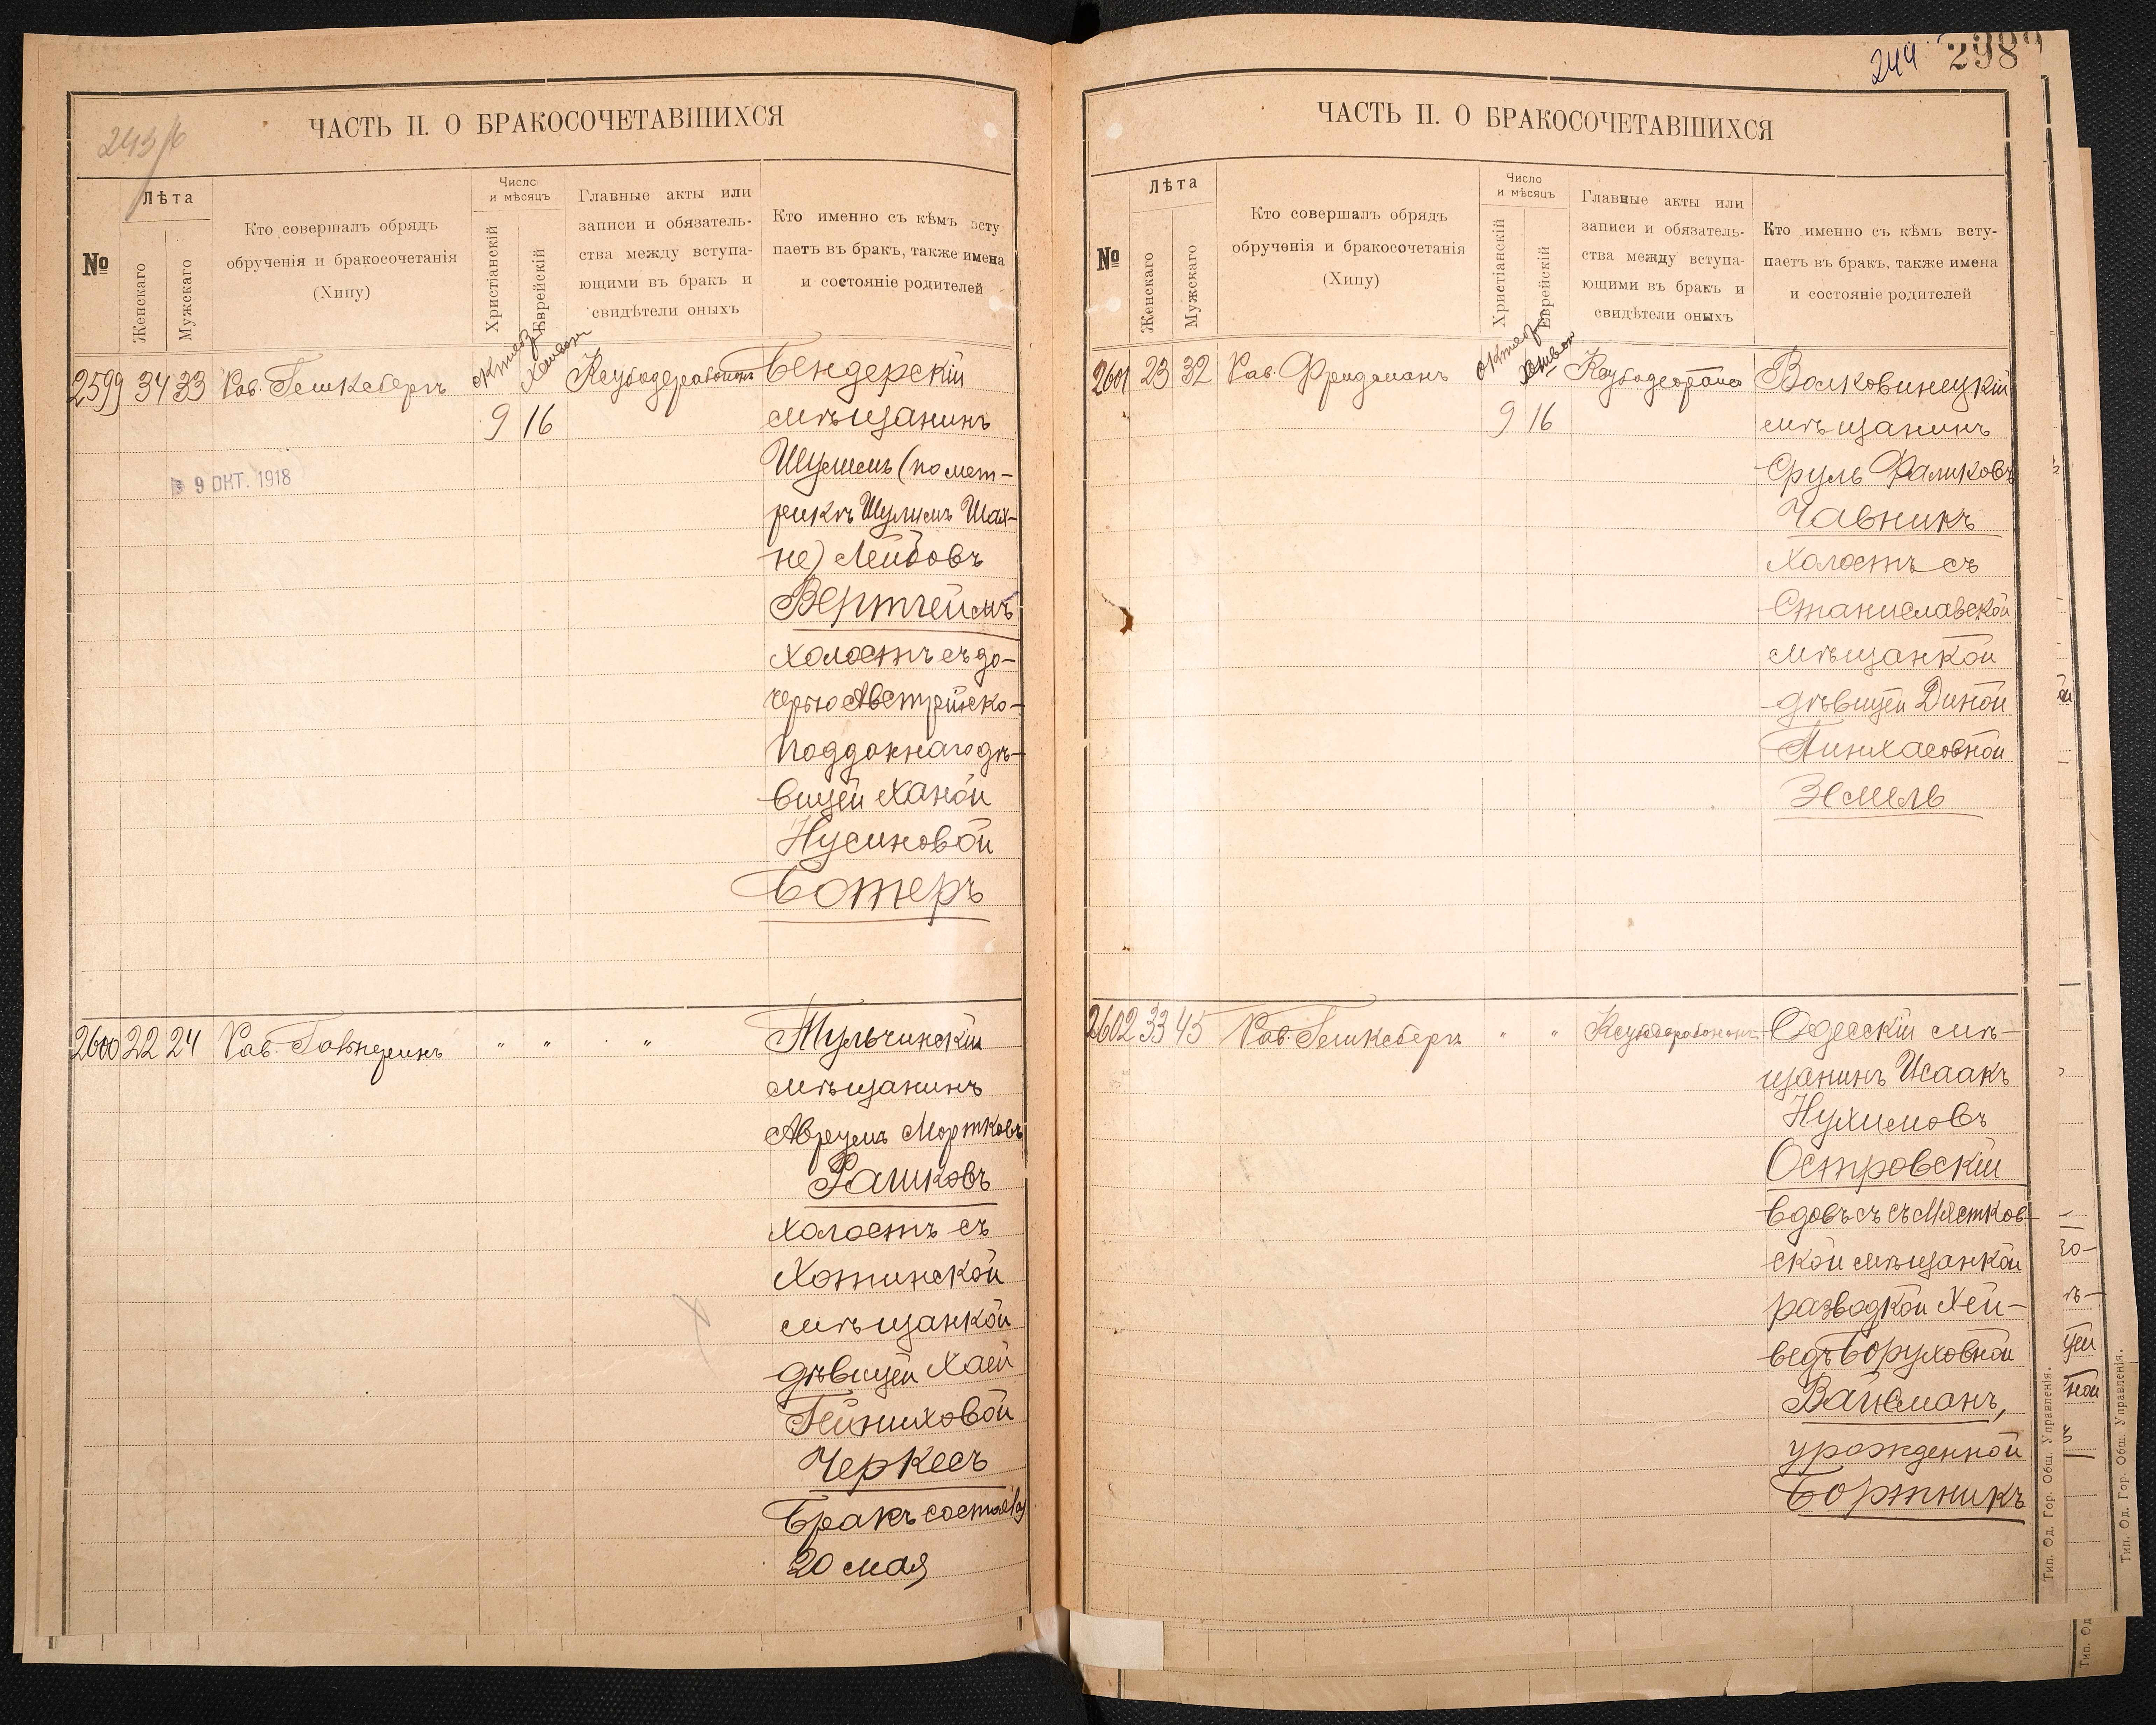 243/б
ЧАСТЬ II. О БРАКОСОЧЕТАВШИХСЯ
№
Лѣта
Женскаго
Мужскаго
Кто совершалъ обрядъ
обрученія и бракосочетанія
(Хипу)
Число
и мѣсяцъ
Христіанскій
Еврейскій
Главные акты или
записи и обязатель-
ства между вступа-
ющими въ бракъ и
свидѣтели оныхъ
Кто именно съ кѣмъ всту
паетъ въ бракъ, также имена
и состояніе родителей
2599 34 33 Рав. Гешксбергъ
9 16
9 ОКТ. 1918
Бендерскій
мѣщанинъ
Шулимъ (по мет-
рикѣ Шулимъ Шах-
не) Лейбовъ
Вертгеймъ
холостъ съ до-
черью Австрійско-
подданнаго дѣ-
вицей Ханой
Нусиновой
Ботеръ
2600 22 24 Рав. " " "
Тульчинскій
мѣщанинъ
Аврумъ Мортковъ
Рашковъ
холостъ съ
Хотинской
мѣщанкой
дѣвицей Хаей
Гейниховой
Черкесъ
Бракъ состоялся
20 мая
244 298
ЧАСТЬ II. О БРАКОСОЧЕТАВШИХСЯ
№
Лѣта
Женскаго
Мужскаго
Кто совершалъ обрядъ
обрученія и бракосочетанія
(Хипу)
Число
и мѣсяцъ
Христіанскій
Еврейскій
Главные акты или
записи и обязатель-
ства между вступа-
ющими въ бракъ и
свидѣтели оныхъ
Кто именно съ кѣмъ всту-
паетъ въ бракъ, также имена
и состояніе родителей
2601 23 32 Рав. Фридманъ
9 16
Волковинецкій
мѣщанинъ
Сруль Фаликовъ
Чавникъ
холостъ съ
Станиславской
мѣщанкой
дѣвицей Диной
Пинхасовной
Эсмель
2602 33 45 Рав. Гешксбергъ " "
Одесскій мѣ-
щанинъ Исаакъ
Нухимовъ
Островскій
вдовъ съ Мястков-
ской мѣщанкой
разводкой Хей-
ведъ Боруховной
Вайсманъ,
урожденной
Бортникъ
Тип. Од. Гор. Общ. Управленія.
Тип. Од. Гор. Общ. Управленія.
Тип. Од